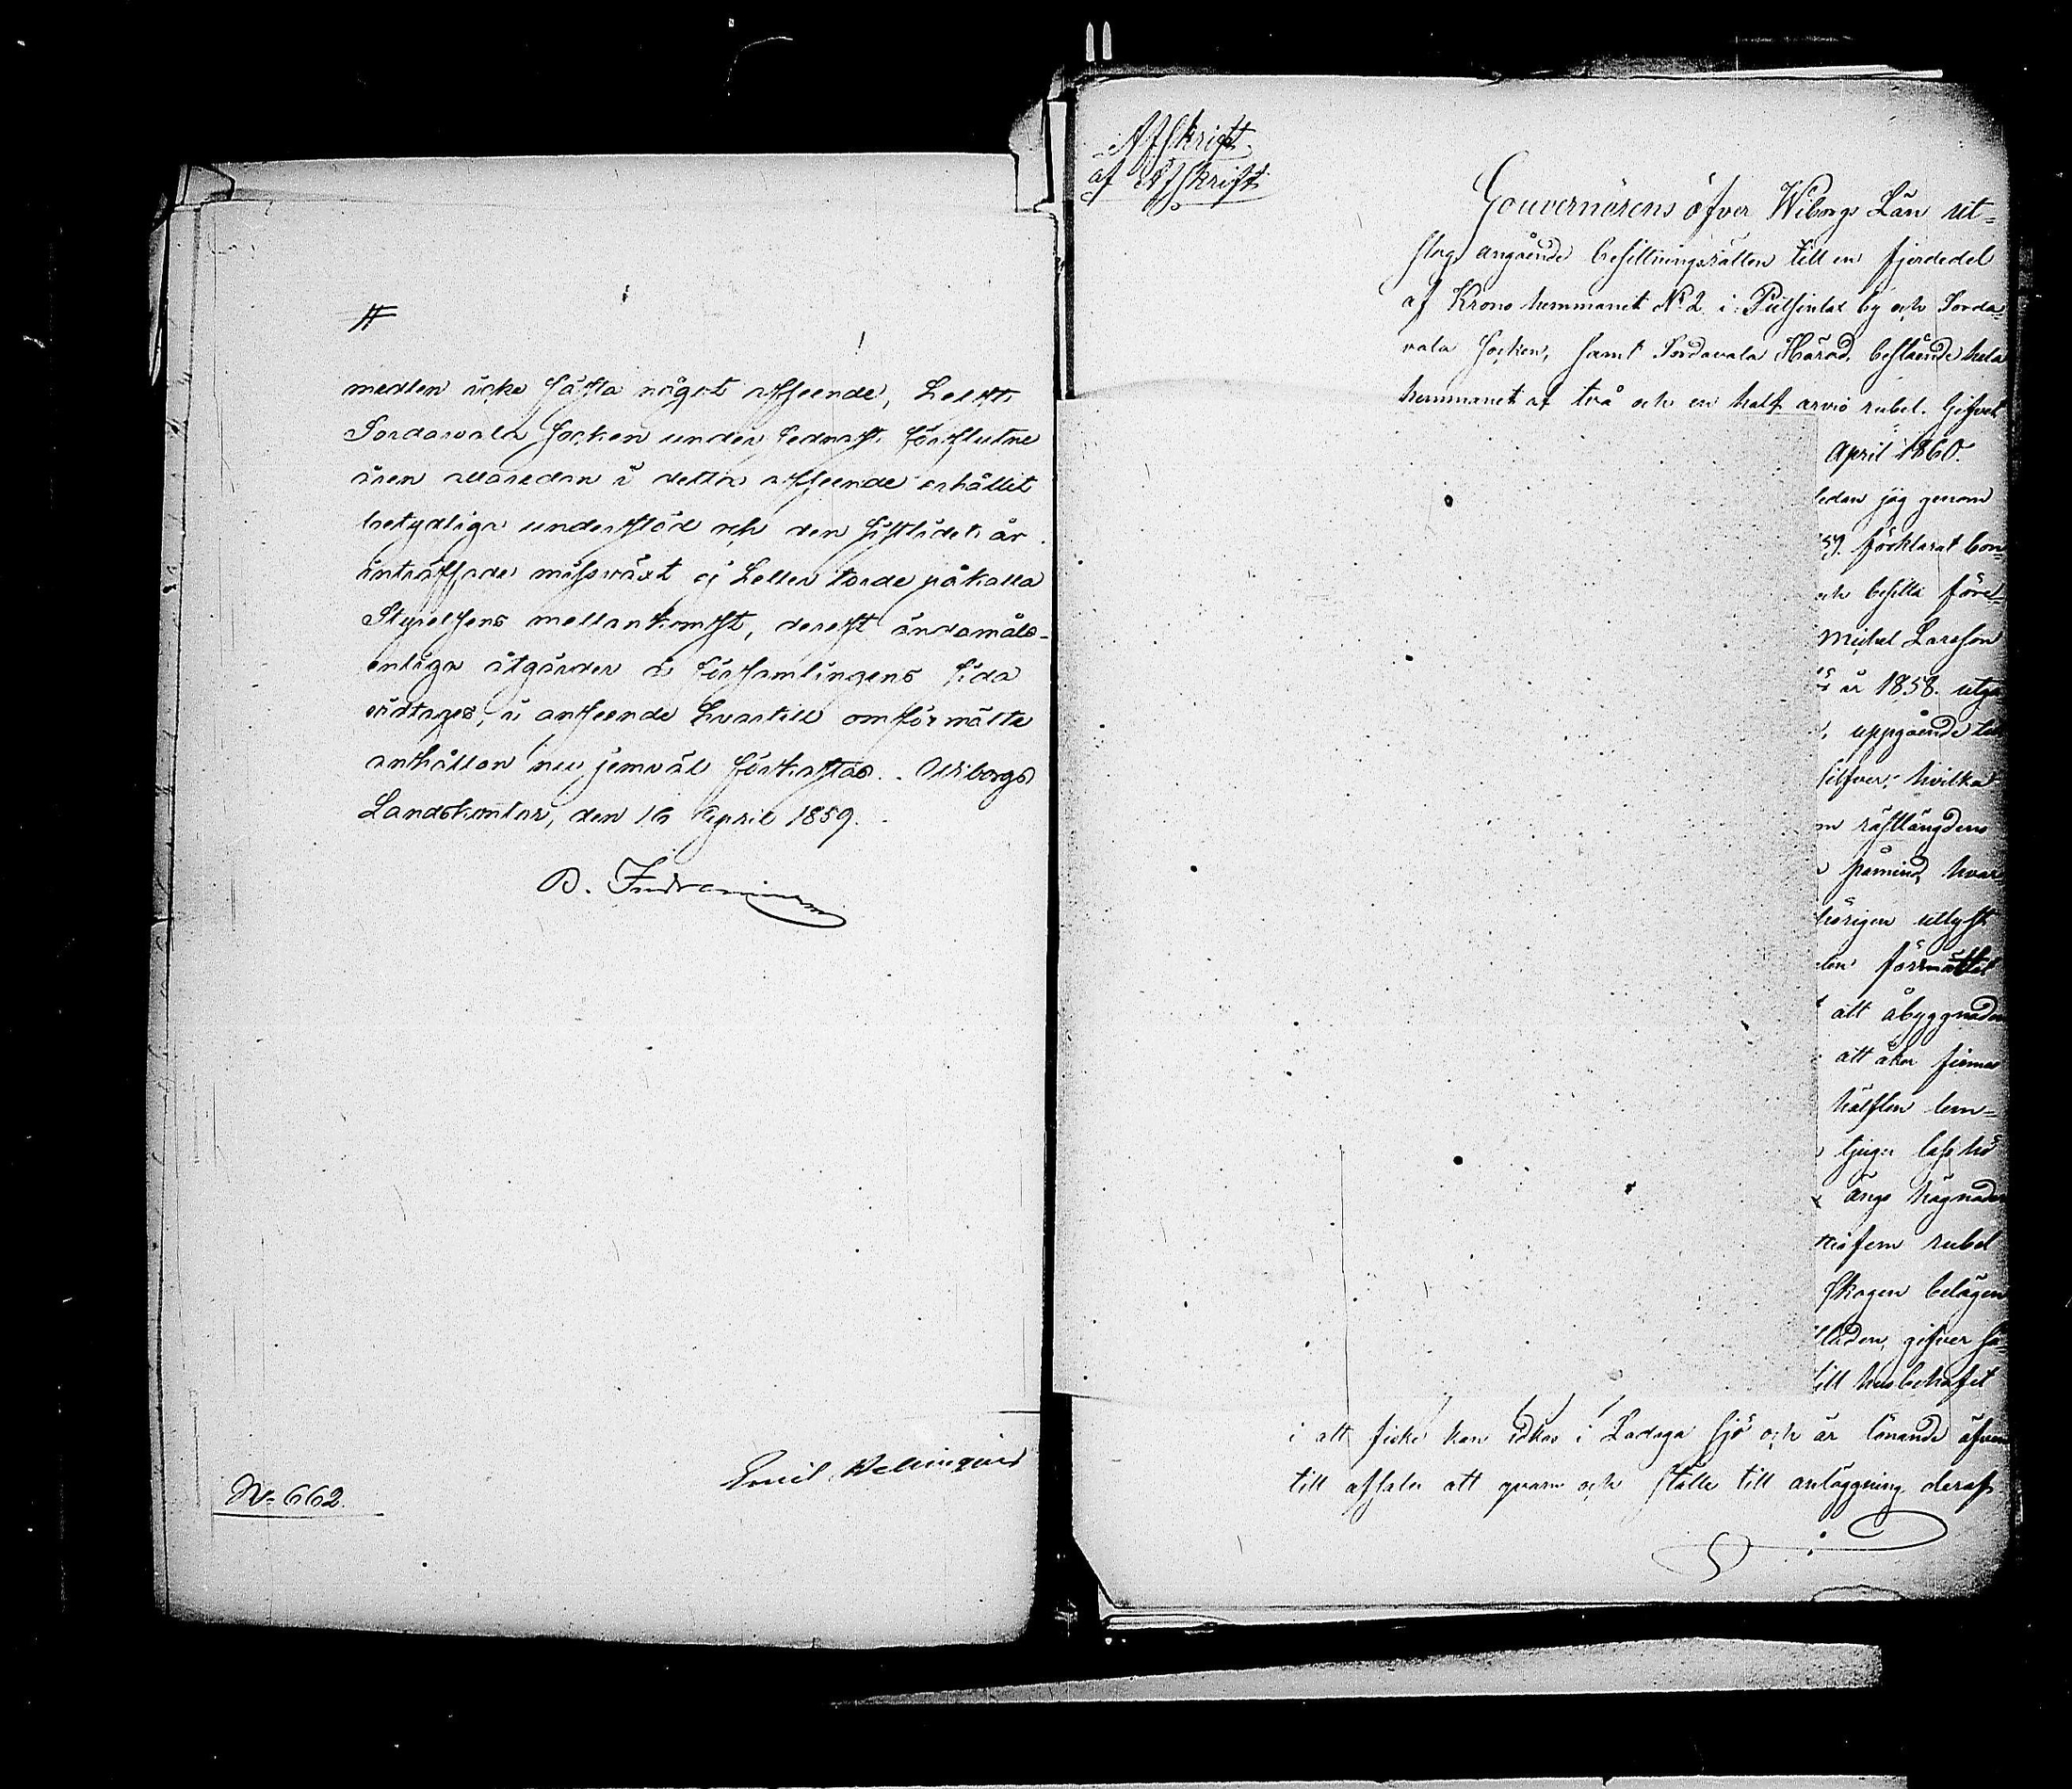 #
medlen icke fästa något afseende, helst
Sordavala Socken under sednast förflutne
åren allaredan i detta afseende erhållit
betydliga understöd och den sistlidet år
inträffade missväxt ej heller torde påkalla
Styrelsens mellankomst, derest ändamåls-
enliga åtgärder å församlingens sida
vidtages, i anseende hvartill omförmälte
anhållan nu jemväl förkastas. Wiborgs
Landskontor, den 16 April 1859.
B. Indrenius
Emil
No 662.
Afskrift
af Afskrift
Gouvernörens öfver Wiborgs Län ut-
slag angående besittningsrätten till en fjerdedel
af Krono hemmanet No 2 i Putsinlax by och Sorda-
vala Socken, samt Sordavala Härad, bestående hela
hemmanet af två och en half arvio rubel. Gifvet
April 1860.
sedan jag genom
59. förklarat bon-
och besitta före-
Michel Larsson
är 1858. utga
uppgående till
silfver, hvilka
m rästlängden
påmind, hvar
hörigen utlyst
förmältet
att åbyggnaden
att åker finnes
hälften lem-
tjugu lass hö
ängs hägnaden
tiofem rubel
skogen belägen
staden, gifver
till husbehofet
i att fiske kan idkas i Ladoga sjö och är lönande äfven
till afsalu att qvarn och ställe till anläggning deraf